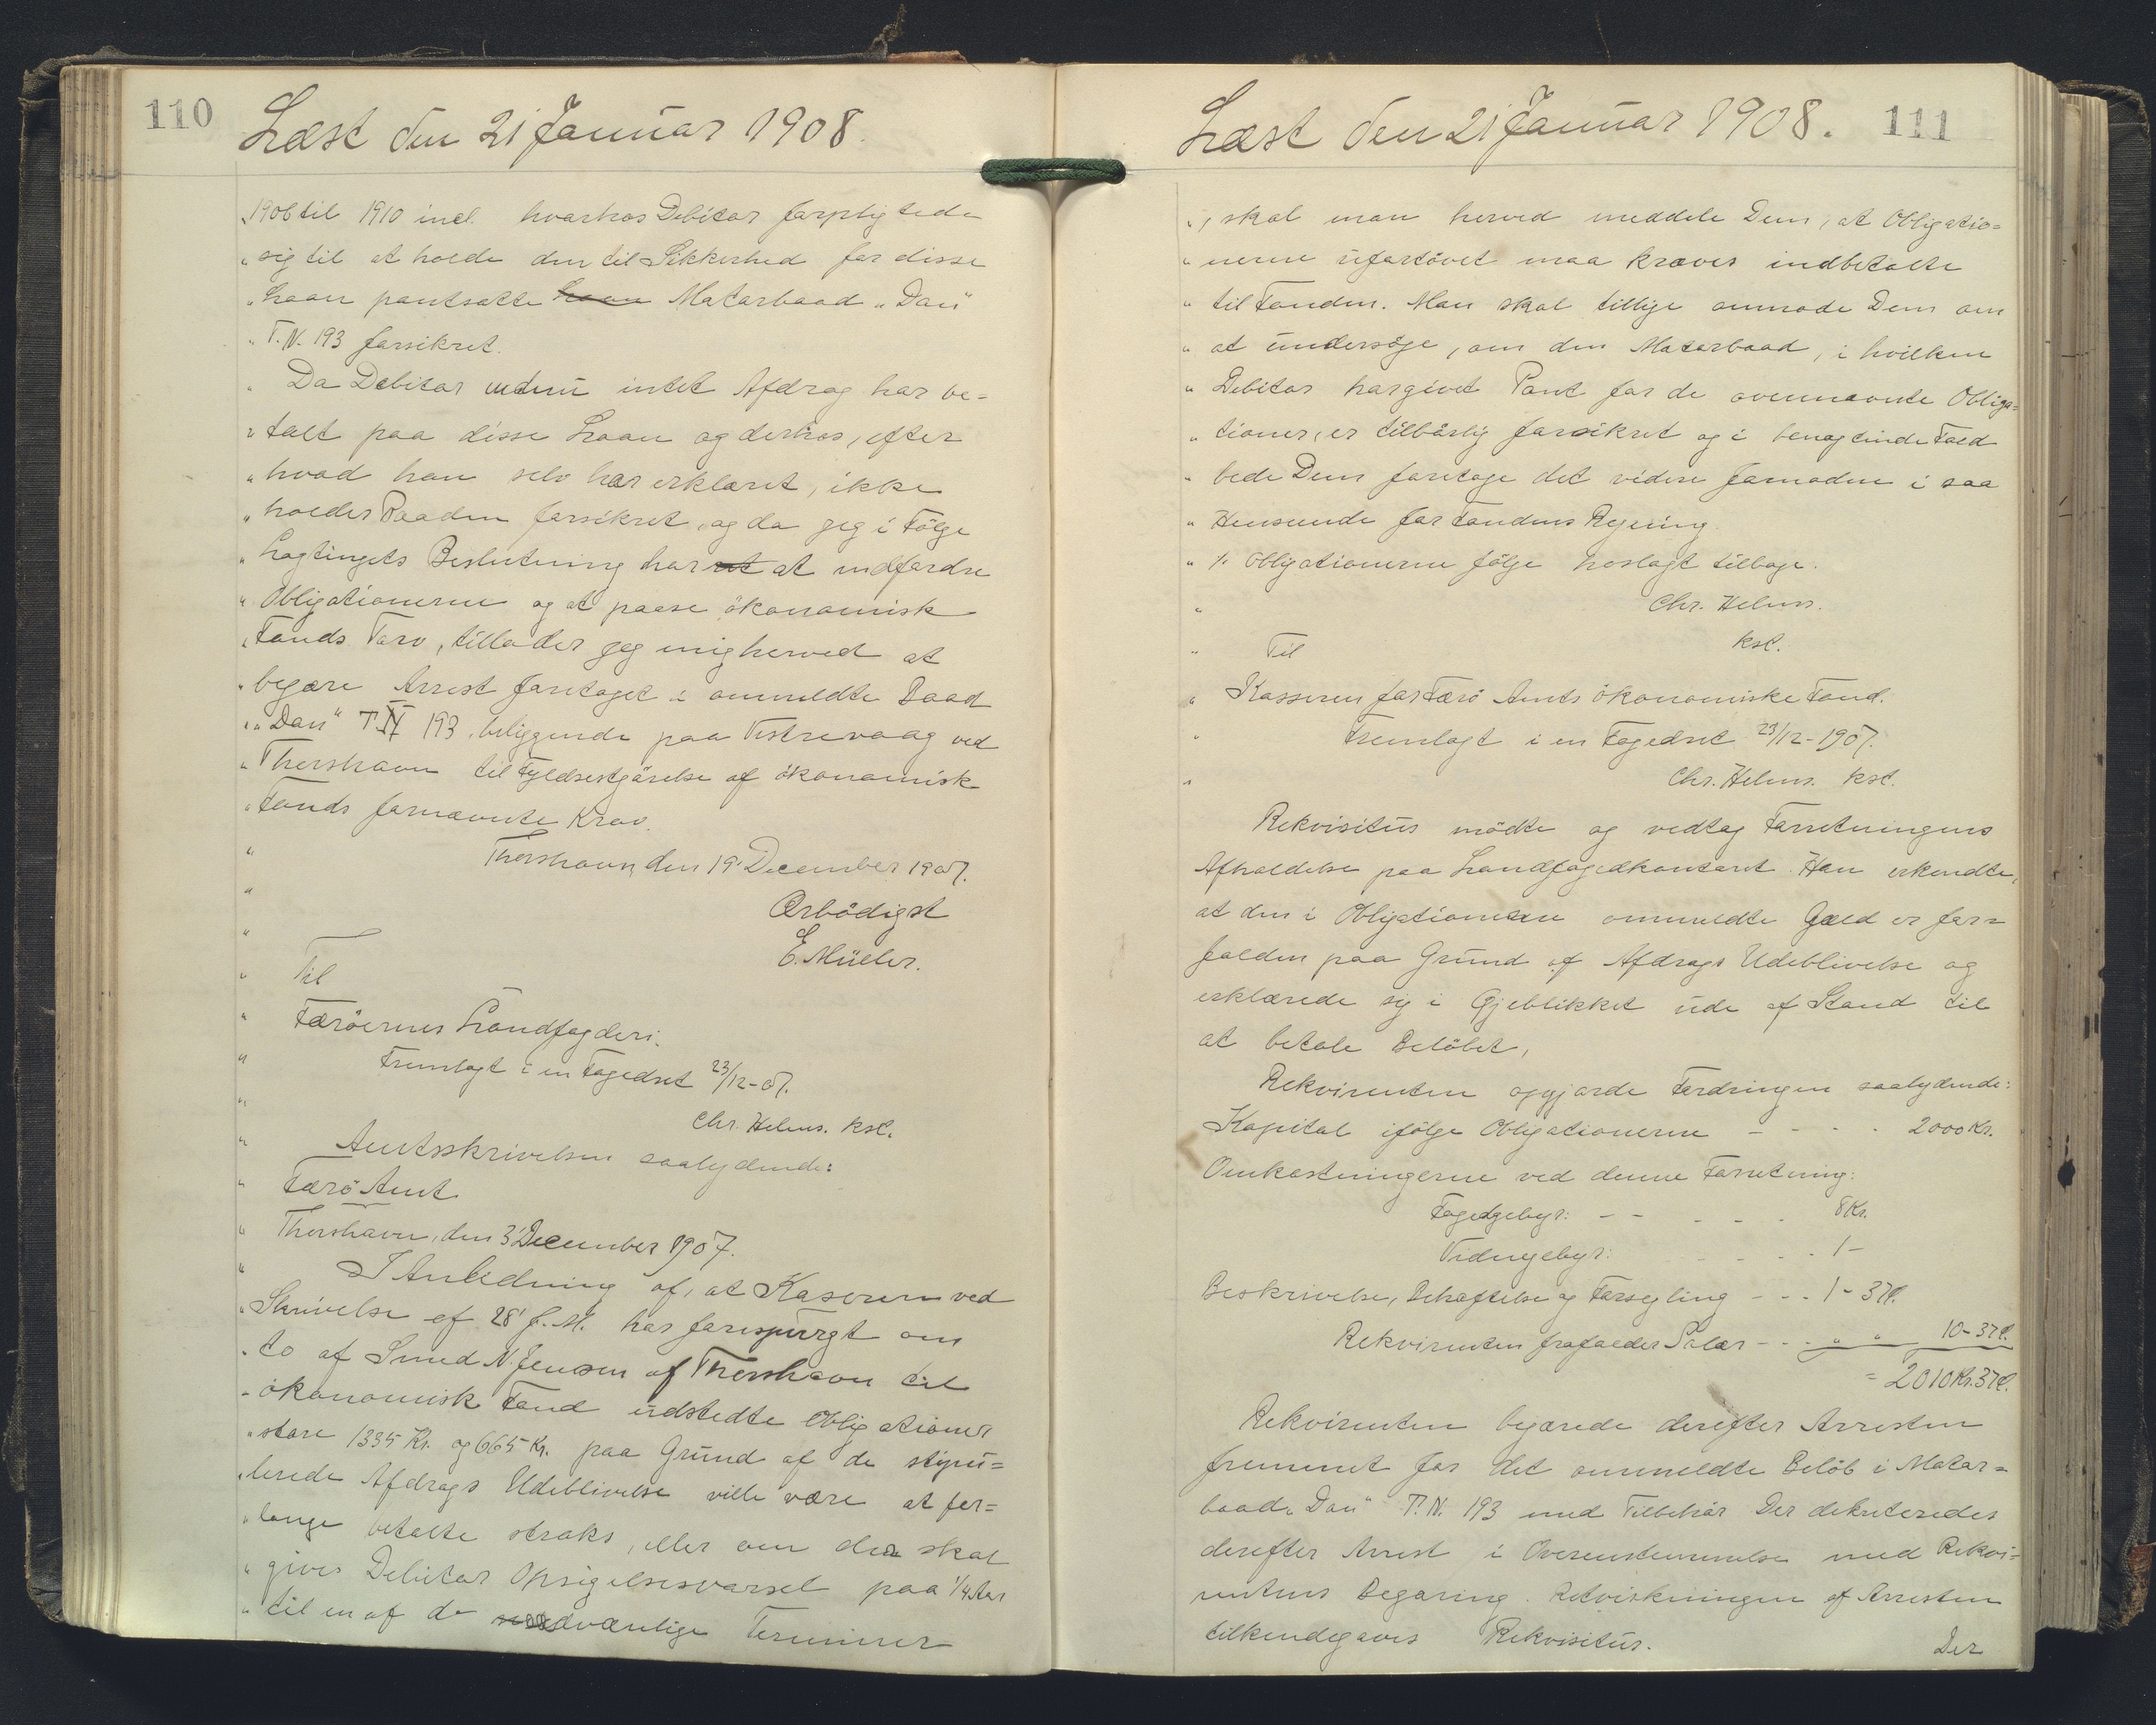 110
Læst den 21' Januar 1908.
"1906 til 1910 incl. hvorhos Debitor forpligtede
"sig til at holde den til Sikkerhed for disse
"Laan pantsatte Laan Motorbaad "Dan"
"T. N. 193 forsikret.
" Da Debitor endnu intet Afdrag har be=
"talt paa disse Laan og derhos, efter
"hvad han selv har erklæret, ikke
"holder Baaden forsikret, og da jeg i Følge
"Lagtingets Beslutning har at at indfordre
"Obligationerne og at paase økonomisk
"Fonds Tarv, tillader jeg mig herved at
"begære Arrest foretaget i ommeldte Baad
""Dan" T. N 193, beliggende paa Vestrevaag ved
"Thorshavn til Fyldestgørelse af økonomisk
"Fonds fornævnte Krav.
" Thorshavn, den 19' December 1907.
" Ærbødigst
" E. Müller.
" Til
" Færøernes Landfogderi.
" Fremlagt i en Fogedret 23/12-07.
" Chr. Helms. kst.
" Amtsskrivelsen saalydende:
" Færø Amt
" Thorshavn, den 3' December 1907.
" I Anledning af, at Kasseren ved
"Skrivelse af 28' f. M. har forespurgt om
"to af Smed N. Jensen af Thorshavn til
"økonomisk Fond udstedte Obligationer
"store 1335 Kr. og 665 Kr. paa Grund af de stipu=
"lerede Afdrags Udeblivelse ville være at for=
"lange betalte straks, eller om der skal
"gives Debitor Opsigelsesvarsel paa 1/4 Aar
"til en af de sædvanlige Terminer
Læst den 21' Januar 1908. 111
", skal man herved meddele Dem, at Obligatio=
"nerne ufortøvet maa kræves indbetalte
"til Fonden. Man skal tillige anmode Dem om
"at undersøge, om den Motorbaad, i hvilken
"Debitor har givet Pant for de ovennævnte Obliga=
"tioner, er tilbørlig forsikret og i benægtende Fald
"bede Dem foretage det videre fornødne i saa
"Henseende for Fondens Regning.
"/. Obligationerne følge hoslagt tilbage.
" Chr. Helms.
kst.
" Til
" Kasseren for Færø Amts økonomiske Fond.
" Fremlagt i en Fogedret 23/12-1907.
" Chr. Helms. kst.
Rekvisitus mødte og vedtog Forretningens
Afholdelse paa Landfogedkontoret. Han erkendte,
at den i Obligationerne ommeldte Gæld er for=
falden paa Grund af Afdrags Udeblivelse og
erklærede sig i Øjeblikket ude af Stand til
at betale Beløbet,
Rekvirenten opgjorde Fordringen saalydende:
Kapital ifølge Obligationerne - - - - 2000 Kr.
Omkostningerne ved denne Forretning:
Fogedgebyr: - - - - - 8 Kr.
Vidnegebyr: - - - - 1 -
Beskrivelse, Behæftelse og Forsegling - - - 1 - 37 Ø.
Rekvirenten frafalder Salær - - - " " 10 - 37 Ø.
= 2010 Kr. 37 Ø.
Rekvirenten begærede derefter Arresten
fremmet for det ommeldte Beløb i Motor=
baad "Dan" T. N. 193 med Tilbehør. Der dekreteredes
derefter Arrest i Overensstemmelse med Rekvi=
rentens Begæring. Retsvirkningen af Arresten
tilkendegaves Rekvisitus.
Der